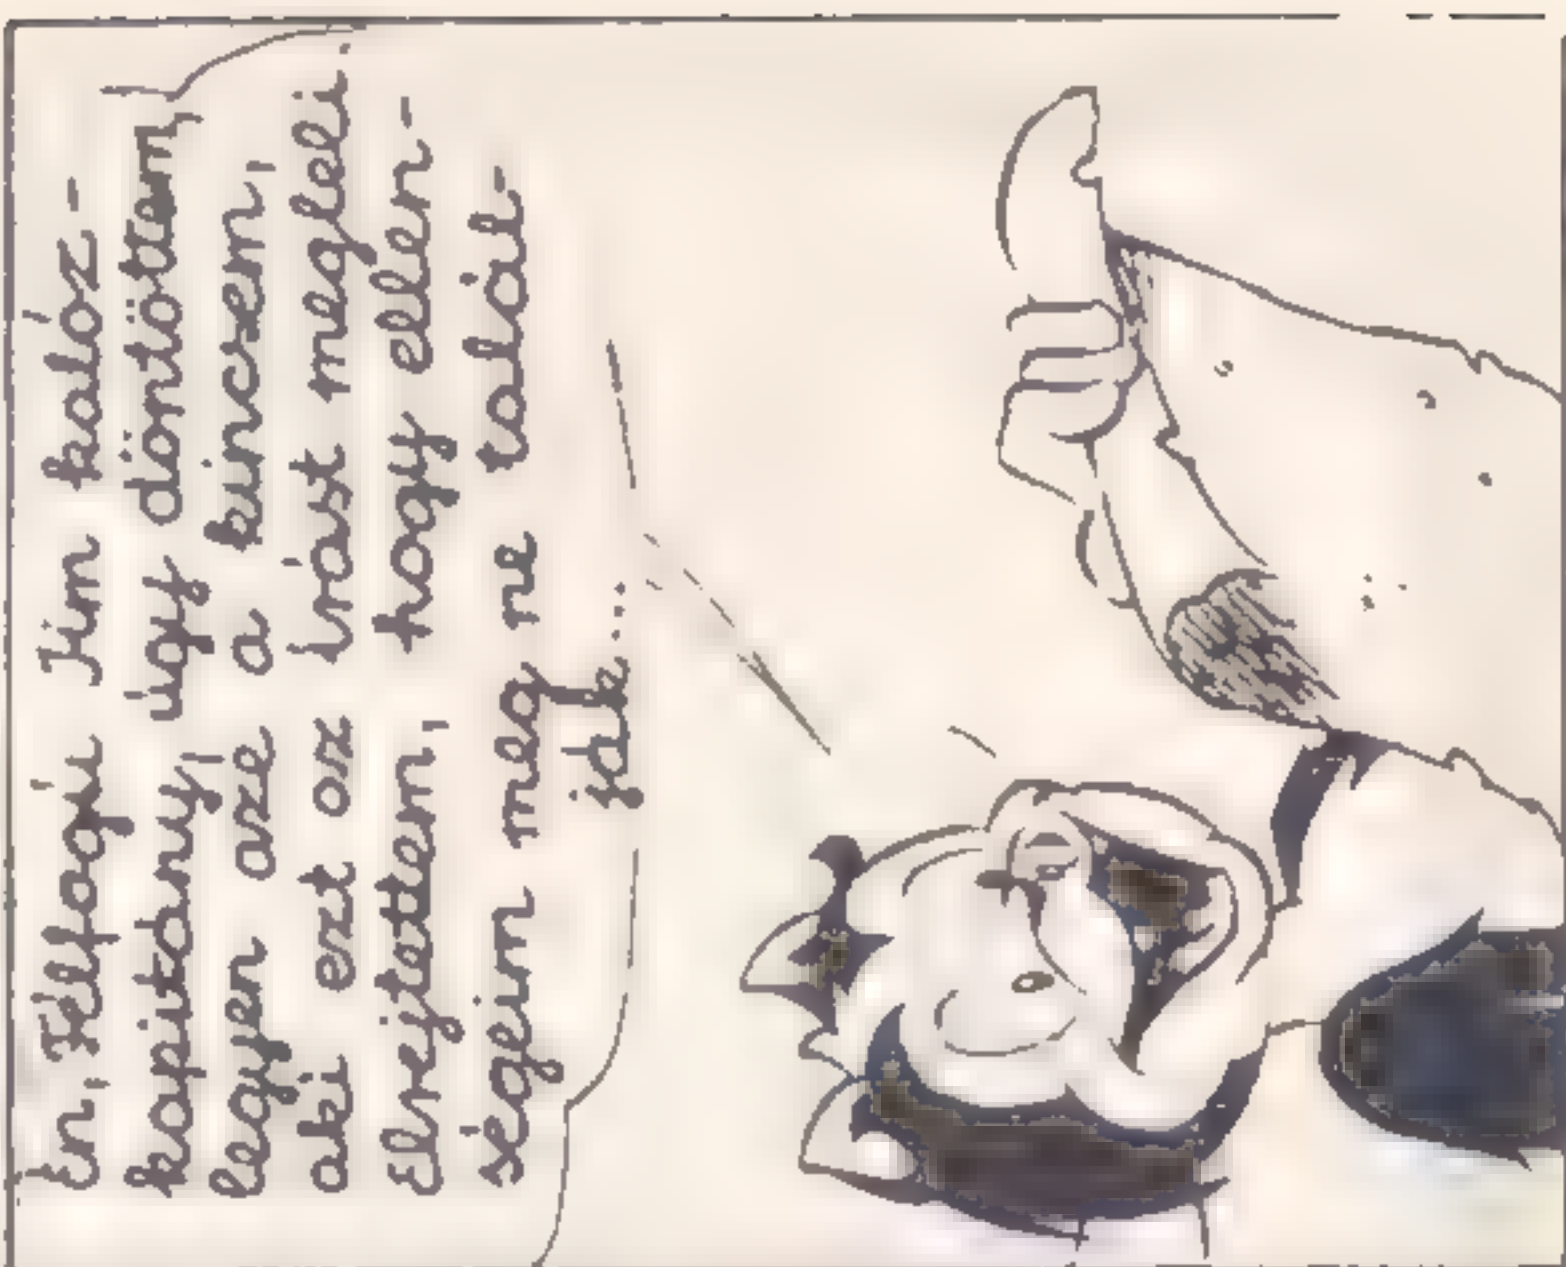 Én, Félfogú Jim kalóz-
kapitány, úgy döntöttem,
legyen azé a kincsem,
aki ezt az írást megleli.
Elrejtettem, hogy ellen-
ségeim meg ne talál-
ják...